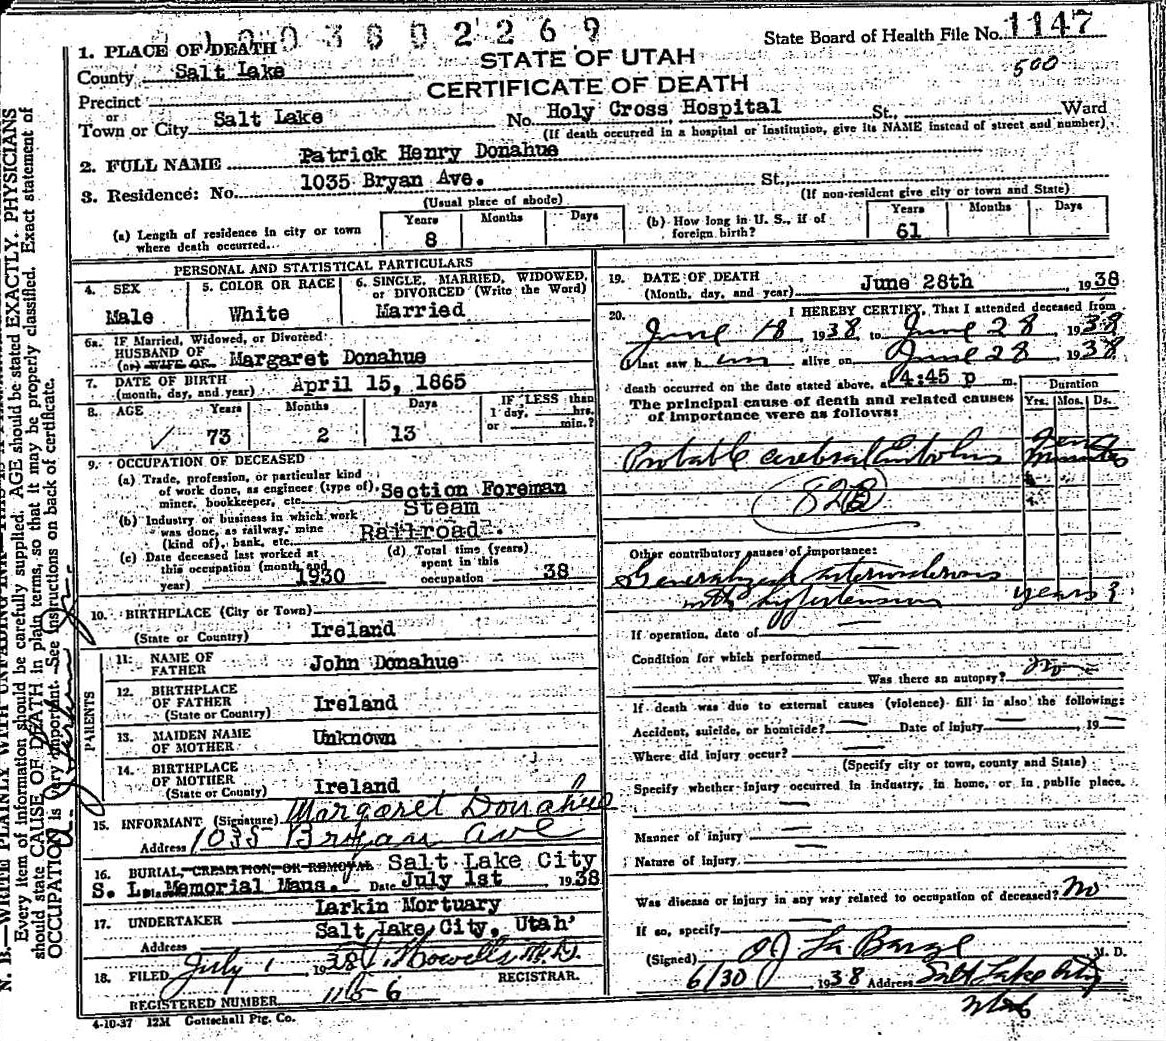 State Board of Health File No. 1147
500
1. PLACE OF DEATH
County Salt Lake
STATE OF UTAH
CERTIFICATE OF DEATH
Precinct
or
Town or City Salt Lake No. Holy Cross Hospital St., Ward
(If death occurred in a hospital or institution, give its NAME instead of street and number)
2. FULL NAME Patrick Henry Donahue
3. Residence: No. 1035 Bryan Ave. St.,
(Usual place of abode) (If non-resident give city or town and State)
(a) Length of residence in city or town where death occurred. Years 8 Months Days
(b) How long in U. S., if of foreign birth? Years 61 Months Days
PERSONAL AND STATISTICAL PARTICULARS
4. SEX Male
5. COLOR OR RACE White
6. SINGLE, MARRIED, WIDOWED, or DIVORCED (Write the Word) Married
6a. If Married, Widowed, or Divorced
HUSBAND OF
(or) WIFE OF Margaret Donahue
7. DATE OF BIRTH
(month, day, and year) April 15, 1865
8. AGE Years 73 Months 2 Days 13 IF LESS than 1 day, hrs. or min.?
9. OCCUPATION OF DECEASED
(a) Trade, profession, or particular kind of work done, as engineer (type of), miner, bookkeeper, etc. Section Foreman
(b) Industry or business in which work was done, as railway, mine (kind of), bank, etc. Steam Railroad
(c) Date deceased last worked at this occupation (month and year) 1930
(d) Total time (years) spent in this occupation 38
10. BIRTHPLACE (City or Town)
(State or Country) Ireland
PARENTS
11. NAME OF FATHER John Donahue
12. BIRTHPLACE OF FATHER
(State or Country) Ireland
13. MAIDEN NAME OF MOTHER Unknown
14. BIRTHPLACE OF MOTHER
(State or Country) Ireland
15. INFORMANT (Signature) Margaret Donahue
Address 1035 Bryan Ave
16. BURIAL, CREMATION, OR REMOVAL Salt Lake City
S. L. Memorial Maus. Date July 1st 1938
17. UNDERTAKER Larkin Mortuary
Address Salt Lake City, Utah
18. FILED July 1 1938 Howells M.D. REGISTRAR.
REGISTERED NUMBER 1156
4-10-37 12M Gottschall Ptg. Co.
19. DATE OF DEATH
(Month, day, and year) June 28th 1938
20. I HEREBY CERTIFY, That I attended deceased from
June 18 1938 to June 28 1938
I last saw him alive on June 28 1938
death occurred on the date stated above, at 4:45 p m.
The principal cause of death and related causes of importance were as follows:
Duration
Yrs. Mos. Ds.
Probable cerebral Embolus minutes
82B
Other contributory causes of importance:
Generalized arteriosclerosis
with hypertension years?
If operation, date of
Condition for which performed
Was there an autopsy? no
If death was due to external causes (violence) fill in also the following:
Accident, suicide, or homicide? Date of injury 19
Where did injury occur?
(Specify city or town, county and State)
Specify whether injury occurred in industry, in home, or in public place.
Manner of injury
Nature of Injury
Was disease or injury in any way related to occupation of deceased? No
If so, specify
(Signed) O J La Barge M. D.
6/30 1938 Address Salt Lake City
Utah
Every item of information should be carefully supplied. AGE should be stated EXACTLY. PHYSICIANS
should state CAUSE OF DEATH in plain terms, so that it may be properly classified. Exact statement of
OCCUPATION is very important. See instructions on back of certificate.